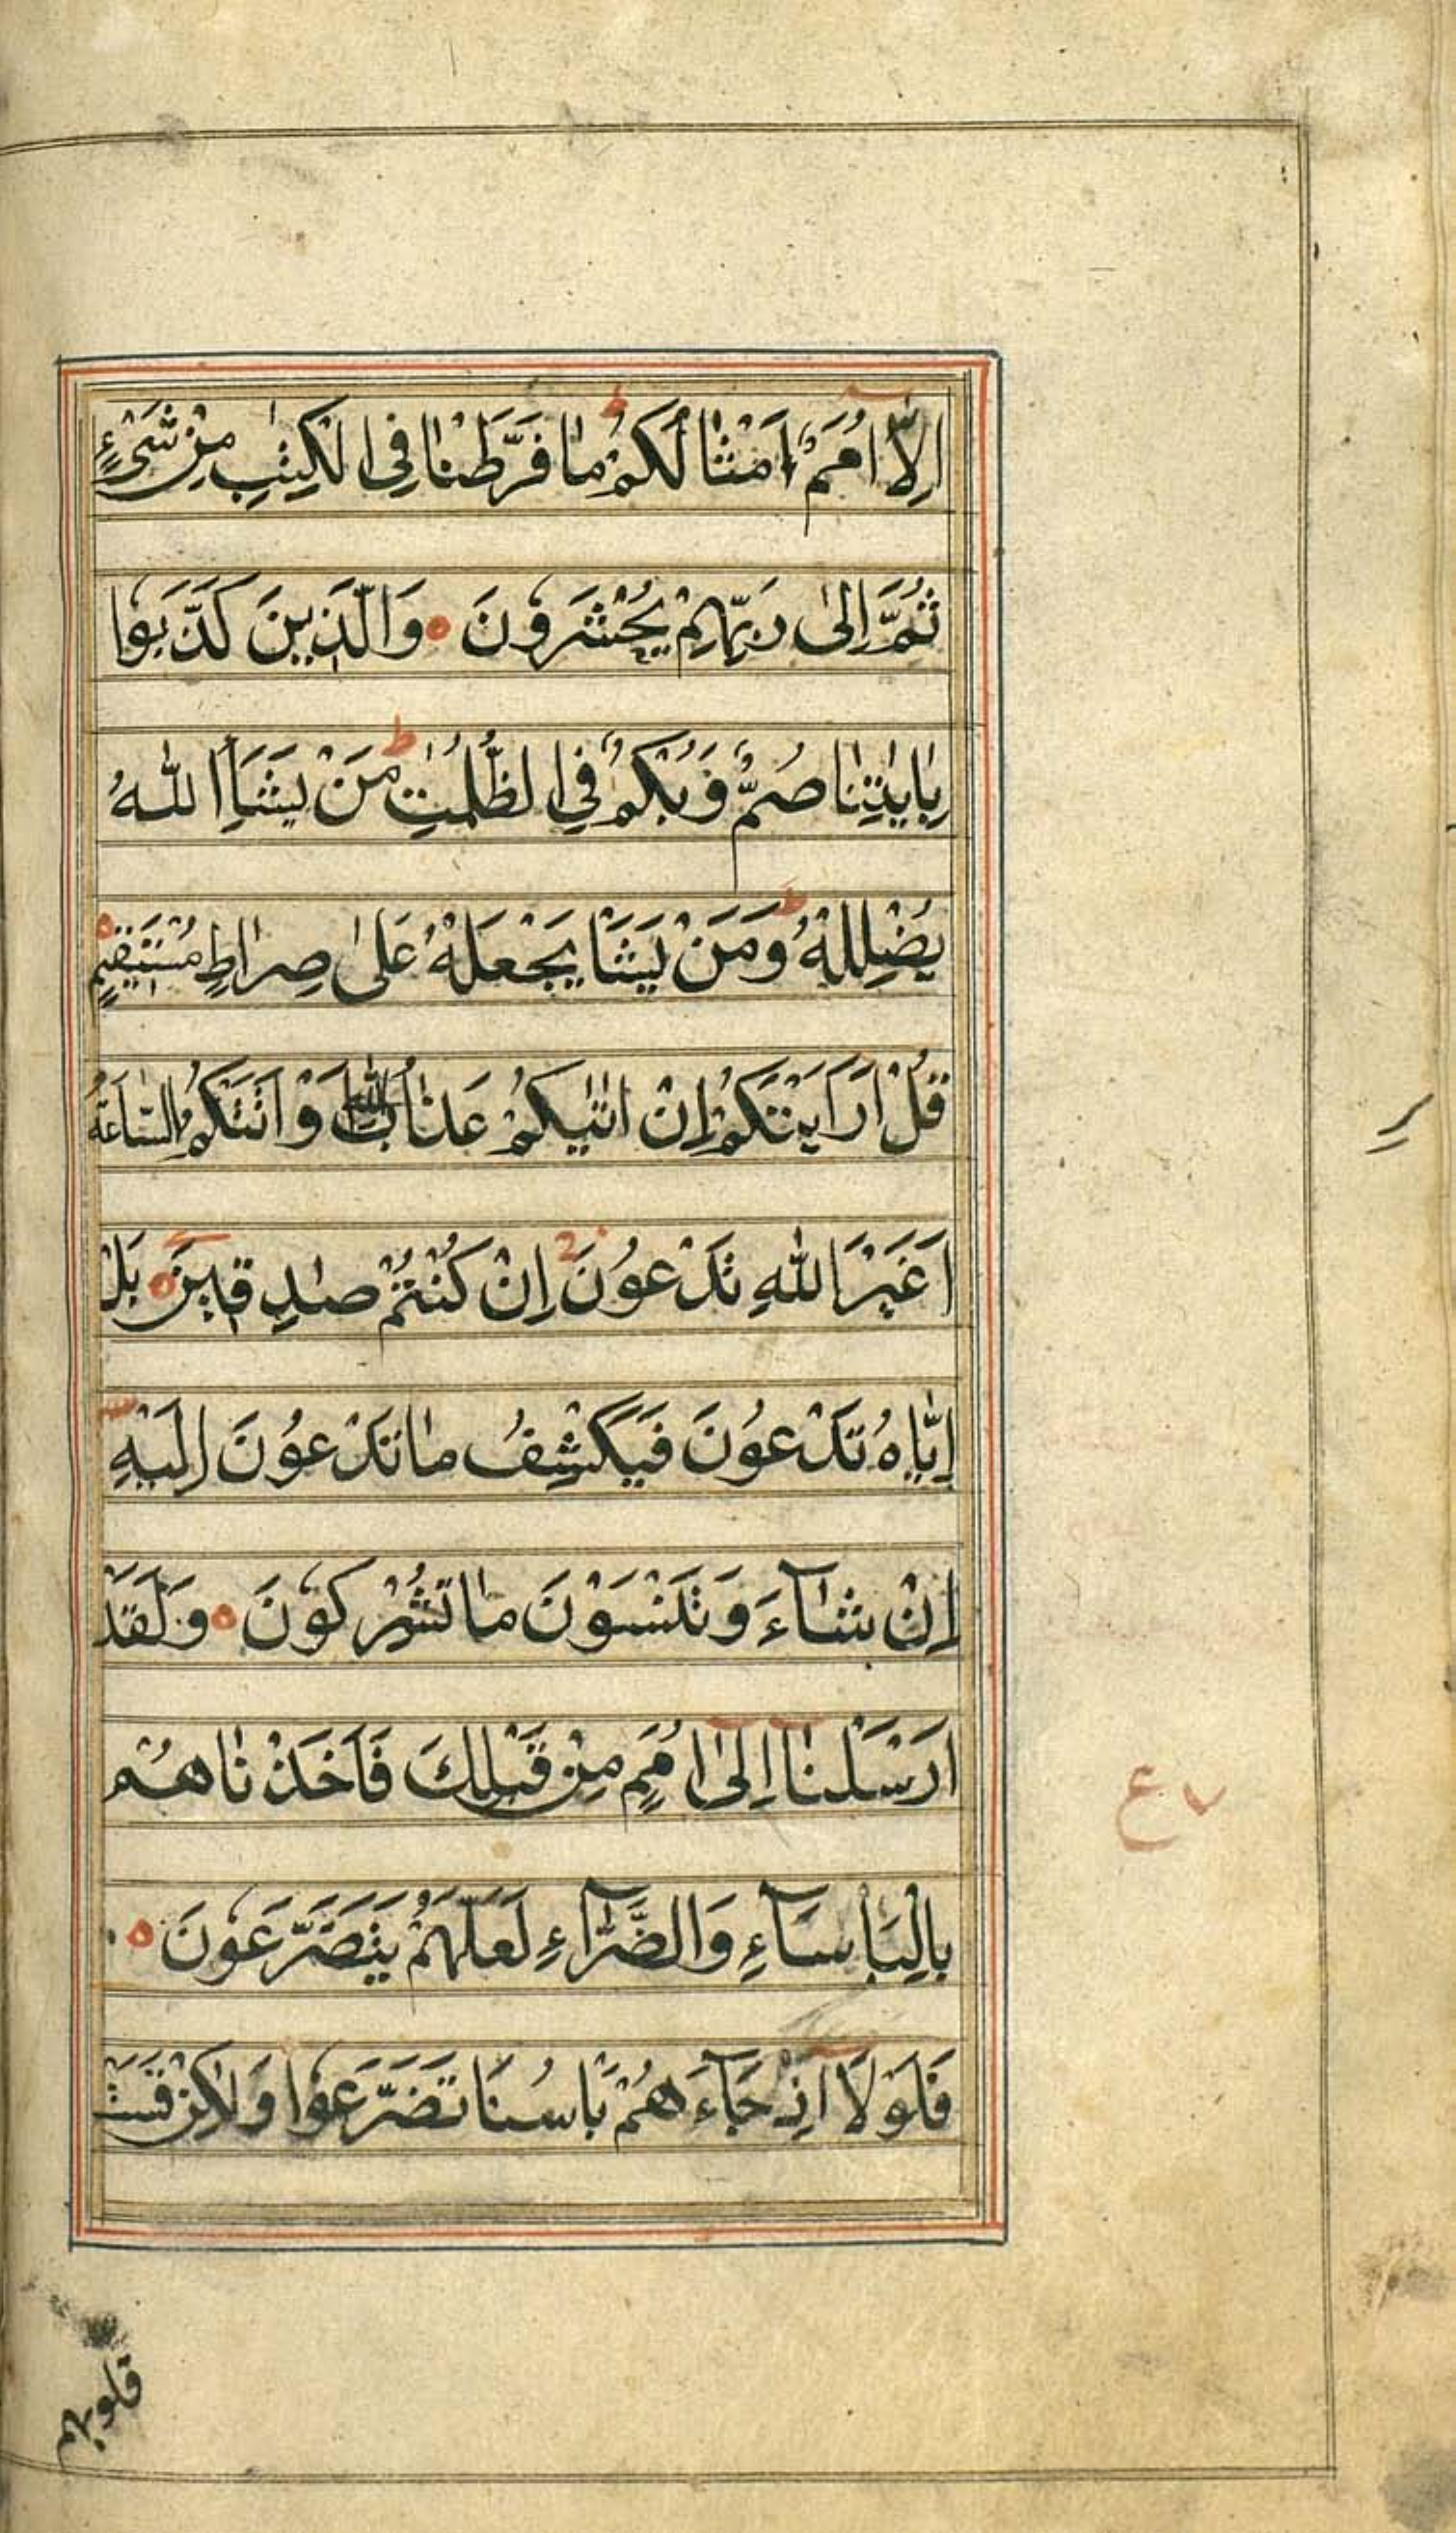 اِلَّا اُمَمٌ اَمْثَالُكُمْ ط مَا فَرَّطْنَا فِی الْكِتٰبِ مِنْ شَیْءٍ
ثُمَّ اِلٰی رَبِّهِمْ یُحْشَرُوْنَ ۝ وَالَّذِیْنَ كَذَّبُوْا
بِاٰیٰتِنَا صُمٌّ وَّبُكْمٌ فِی الظُّلُمٰتِ ط مَنْ یَشَاِ اللّٰهُ
یُضْلِلْهُ ط وَمَنْ یَشَا یَجْعَلْهُ عَلٰی صِرَاطٍ مُسْتَقِیْمٍ ۝
قُلْ اَرَاَیْتَكُمْ اِنْ اَتٰیكُمْ عَذَابُ اللّٰهِ اَوْ اَتَتْكُمُ السَّاعَةُ
اَغَیْرَ اللّٰهِ تَدْعُوْنَ ج اِنْ كُنْتُمْ صٰدِقِیْنَ ۝ بَلْ
اِیَّاهُ تَدْعُوْنَ فَیَكْشِفُ مَا تَدْعُوْنَ اِلَیْهِ
اِنْ شَآءَ وَتَنْسَوْنَ مَا تُشْرِكُوْنَ ۝ وَلَقَدْ
اَرْسَلْنَا اِلٰی اُمَمٍ مِنْ قَبْلِكَ فَاَخَذْنَاهُمْ
بِالْبَاْسَآءِ وَالضَّرَّآءِ لَعَلَّهُمْ یَتَضَرَّعُوْنَ ۝
فَلَوْلَا اِذْ جَآءَهُمْ بَاْسُنَا تَضَرَّعُوْا وَلٰكِنْ قَسَتْ
ع
قلوبهم